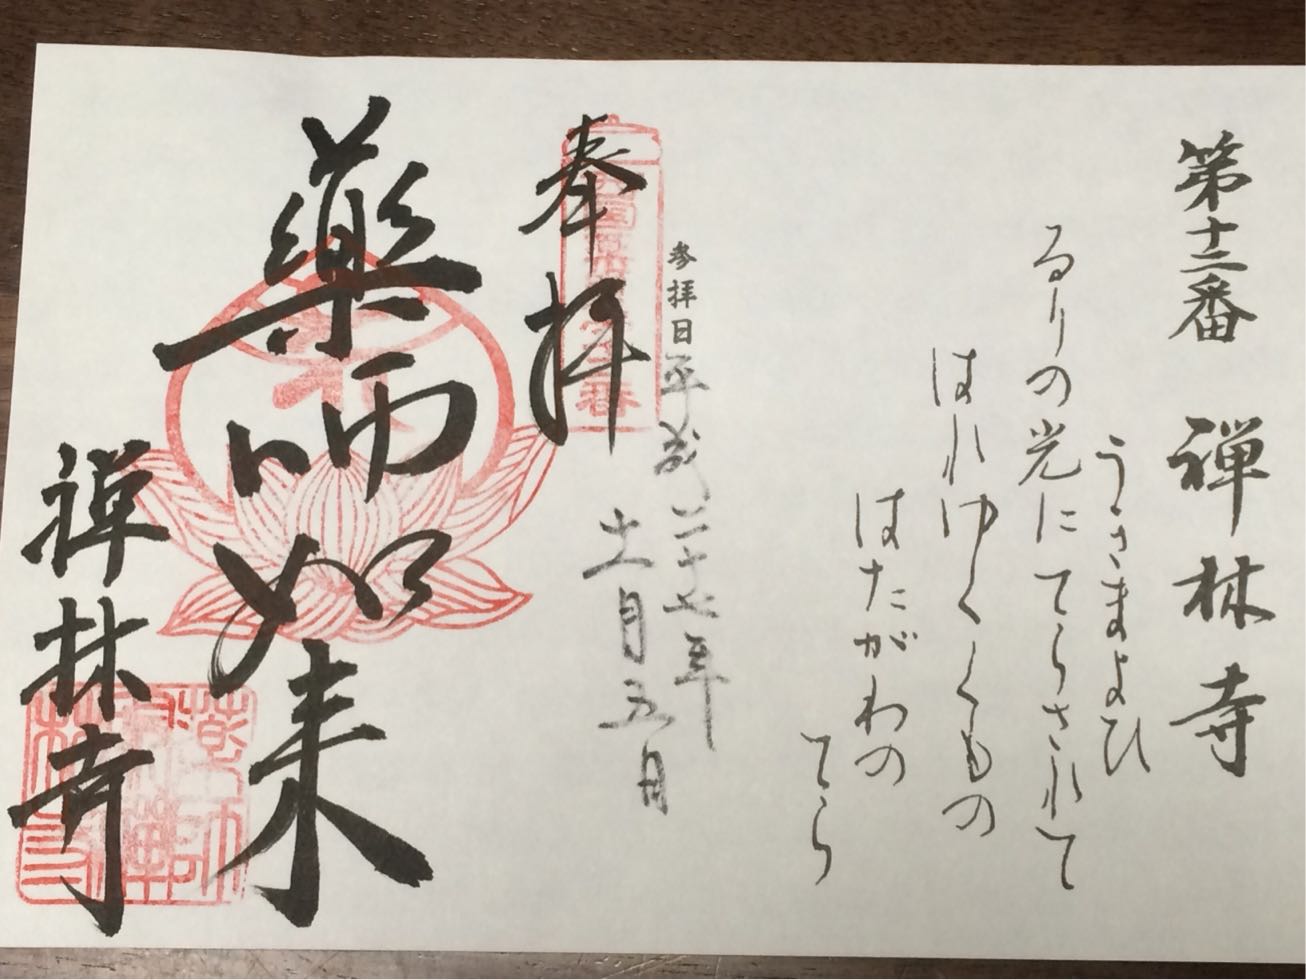 第十二番 禅林寺
うきまよひ
るりの光にてらされて
はれゆくくもの
はたがわの
てら
参拝日 平成二十七年
十一月五日
奉拝
薬師如来
禅林寺